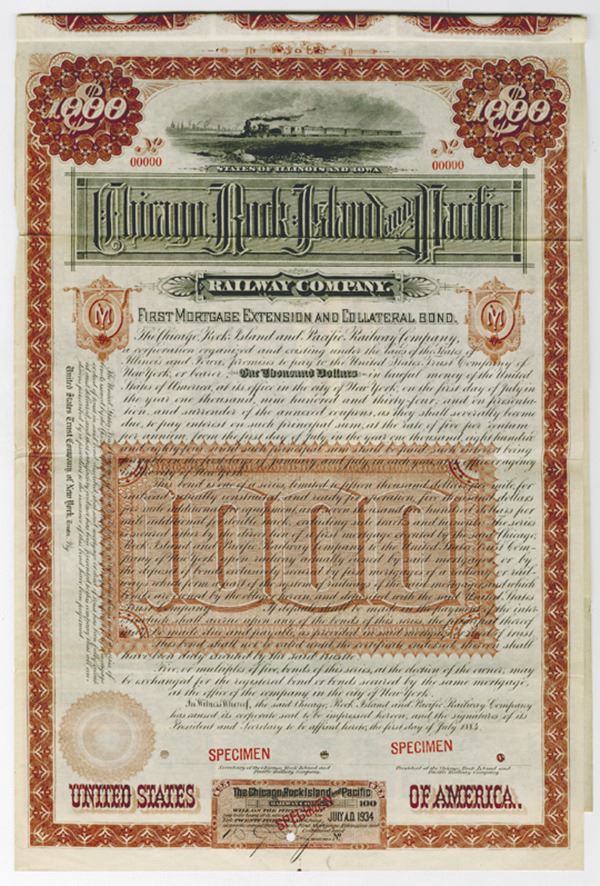 $1000
$1000
No
00000
No
00000
STATES OF ILLINOIS AND IOWA
Chicago, Rock Island and Pacific
RAILWAY COMPANY.
FIRST MORTGAGE EXTENSION AND COLLATERAL BOND.
The Chicago, Rock Island and Pacific Railway Company,
a corporation organized and existing under the laws of the States of
Illinois and Iowa, promises to pay to the United States Trust Company of
New York, or bearer, One Thousand Dollars in lawful money of the United
States of America, at its office in the city of New York, on the first day of July in
the year one thousand, nine hundred and thirty-four, and on presenta-
tion, and surrender of the annexed coupons, as they shall severally become
due, to pay interest on such principal sum, at the rate of five per centum
per annum from the first day of July in the year one thousand eight hundred
and eighty-four until such principal sum shall be paid, interest being
January and July each year, at the agency
This bond is one of a series limited to fifteen thousand dollars per mile, for
railroad actually constructed and ready for operation, five thousand dollars
per mile additional for equipment, and seven thousand five hundred dollars per
mile additional for double track,
is secured alike by the direction of a first mortgage executed by the said Chicago,
Rock Island and Pacific Railway Company to the United States Trust Com-
pany of New York, upon railway actually constructed by said company, or by
pledge of bonds exclusively secured by first mortgage of railway or rail-
ways which form a part of the system of railway of the said mortgagor and which
bonds are owned by the obligor herein, and deposited with the said United States
Trust Company. If default shall be made in the payment of the inter-
est which shall accrue upon any of the bonds of this series, the principal thereof
may be made due and payable, as provided in said mortgage or deed of trust.
This bond shall not be valid until the certificate endorsed hereon shall
have been duly executed by the said trustee.
Five, or multiples of five, bonds of this series, at the election of the owner, may
be exchanged for the registered bond or bonds secured by the same mortgage,
at the office of the company in the city of New York.
In Witness Whereof, the said Chicago, Rock Island and Pacific Railway Company
has caused its corporate seal to be impressed hereon, and the signatures of its
President and Secretary to be affixed hereto, the first day of July 1884.
United States Trust Company of New York, Trustee, By
1000
SPECIMEN
Secretary of the Chicago, Rock Island and
Pacific Railway Company.
SPECIMEN
President of the Chicago, Rock Island and
Pacific Railway Company.
UNITED STATES
OF AMERICA.
The Chicago Rock Island and Pacific
RAILWAY COMPANY
100
JULY A.D. 1934
SPECIMEN
No